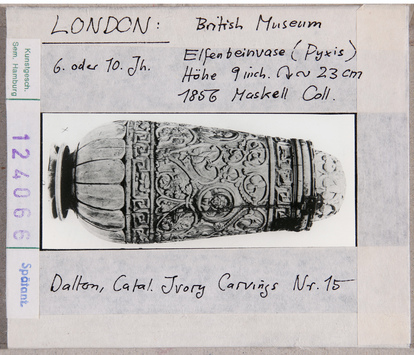 LONDON: British Museum
6. oder 10. Jh.
Elfenbeinvase (Pyxis)
Höhe 9 inch. ~ 23 cm
1856 Maskell Coll.
Kunstgesch.
Sem. Hamburg
124066
Spätant.
Dalton, Catal. Ivory Carvings Nr. 15